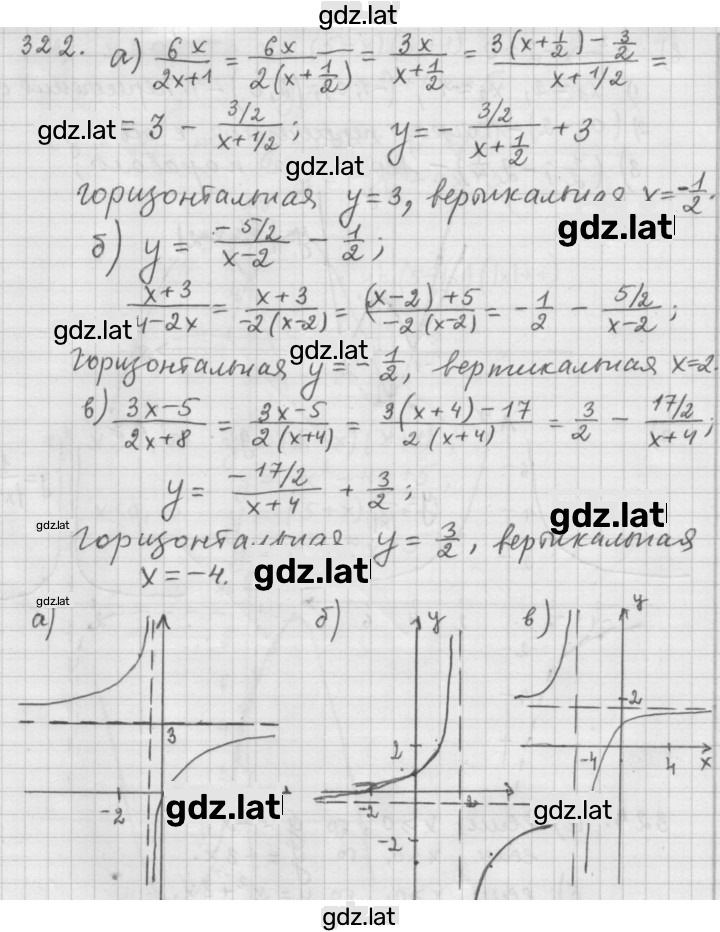 gdz.latl
322. а) 6x/(2x+1) = 6x/(2(x+1/2)) = 3x/(x+1/2) = (3(x+1/2) - 3/2)/(x+1/2) =
gdz.latl
= 3 - (3/2)/(x+1/2); y = - (3/2)/(x+1/2) + 3
gdz.latl
горизонтальная y=3, вертикальная x=-1/2.
gdz.latl
б) y = (-5/2)/(x-2) - 1/2;
(x+3)/(4-2x) = (x+3)/(-2(x-2)) = ((x-2)+5)/(-2(x-2)) = -1/2 - (5/2)/(x-2);
gdz.latl
gdz.latl
горизонтальная y=-1/2, вертикальная x=2.
в) (3x-5)/(2x+8) = (3x-5)/(2(x+4)) = (3(x+4)-17)/(2(x+4)) = 3/2 - (17/2)/(x+4);
y = (-17/2)/(x+4) + 3/2;
gdz.latl
gdz.latl
горизонтальная y = 3/2, вертикальная
x=-4.
gdz.latl
gdz.latl
а) б) y в) y
3
2
-2
2
-2
2
-2
-4 4 x
gdz.latl
gdz.latl
gdz.latl